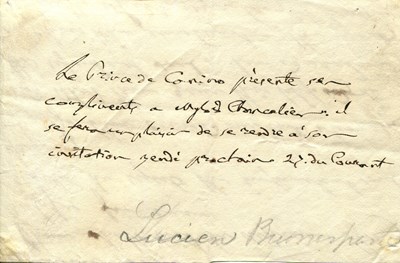 Le Prince de Canino présente ses
compliments a Mylord Chancelier, il
se fera un plaisir de se rendre à son
invitation vendi prochain 27. du Courant
Lucien Buonaparte